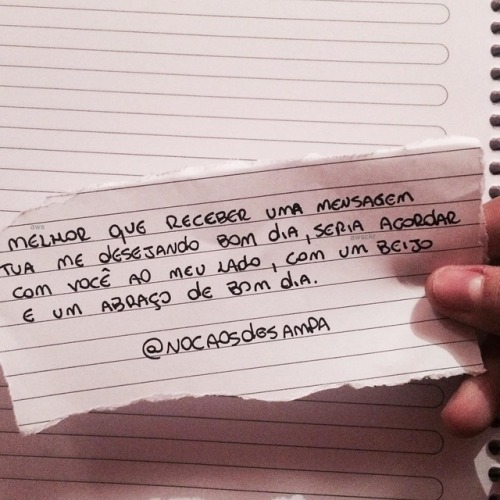 MELHOR QUE RECEBER UMA MENSAGEM
TUA ME DESEJANDO BOM DIA, SERIA ACORDAR
COM VOCÊ AO MEU LADO, COM UM BEIJO
E UM ABRAÇO DE BOM DIA.
@NOCAOSDESAMPA